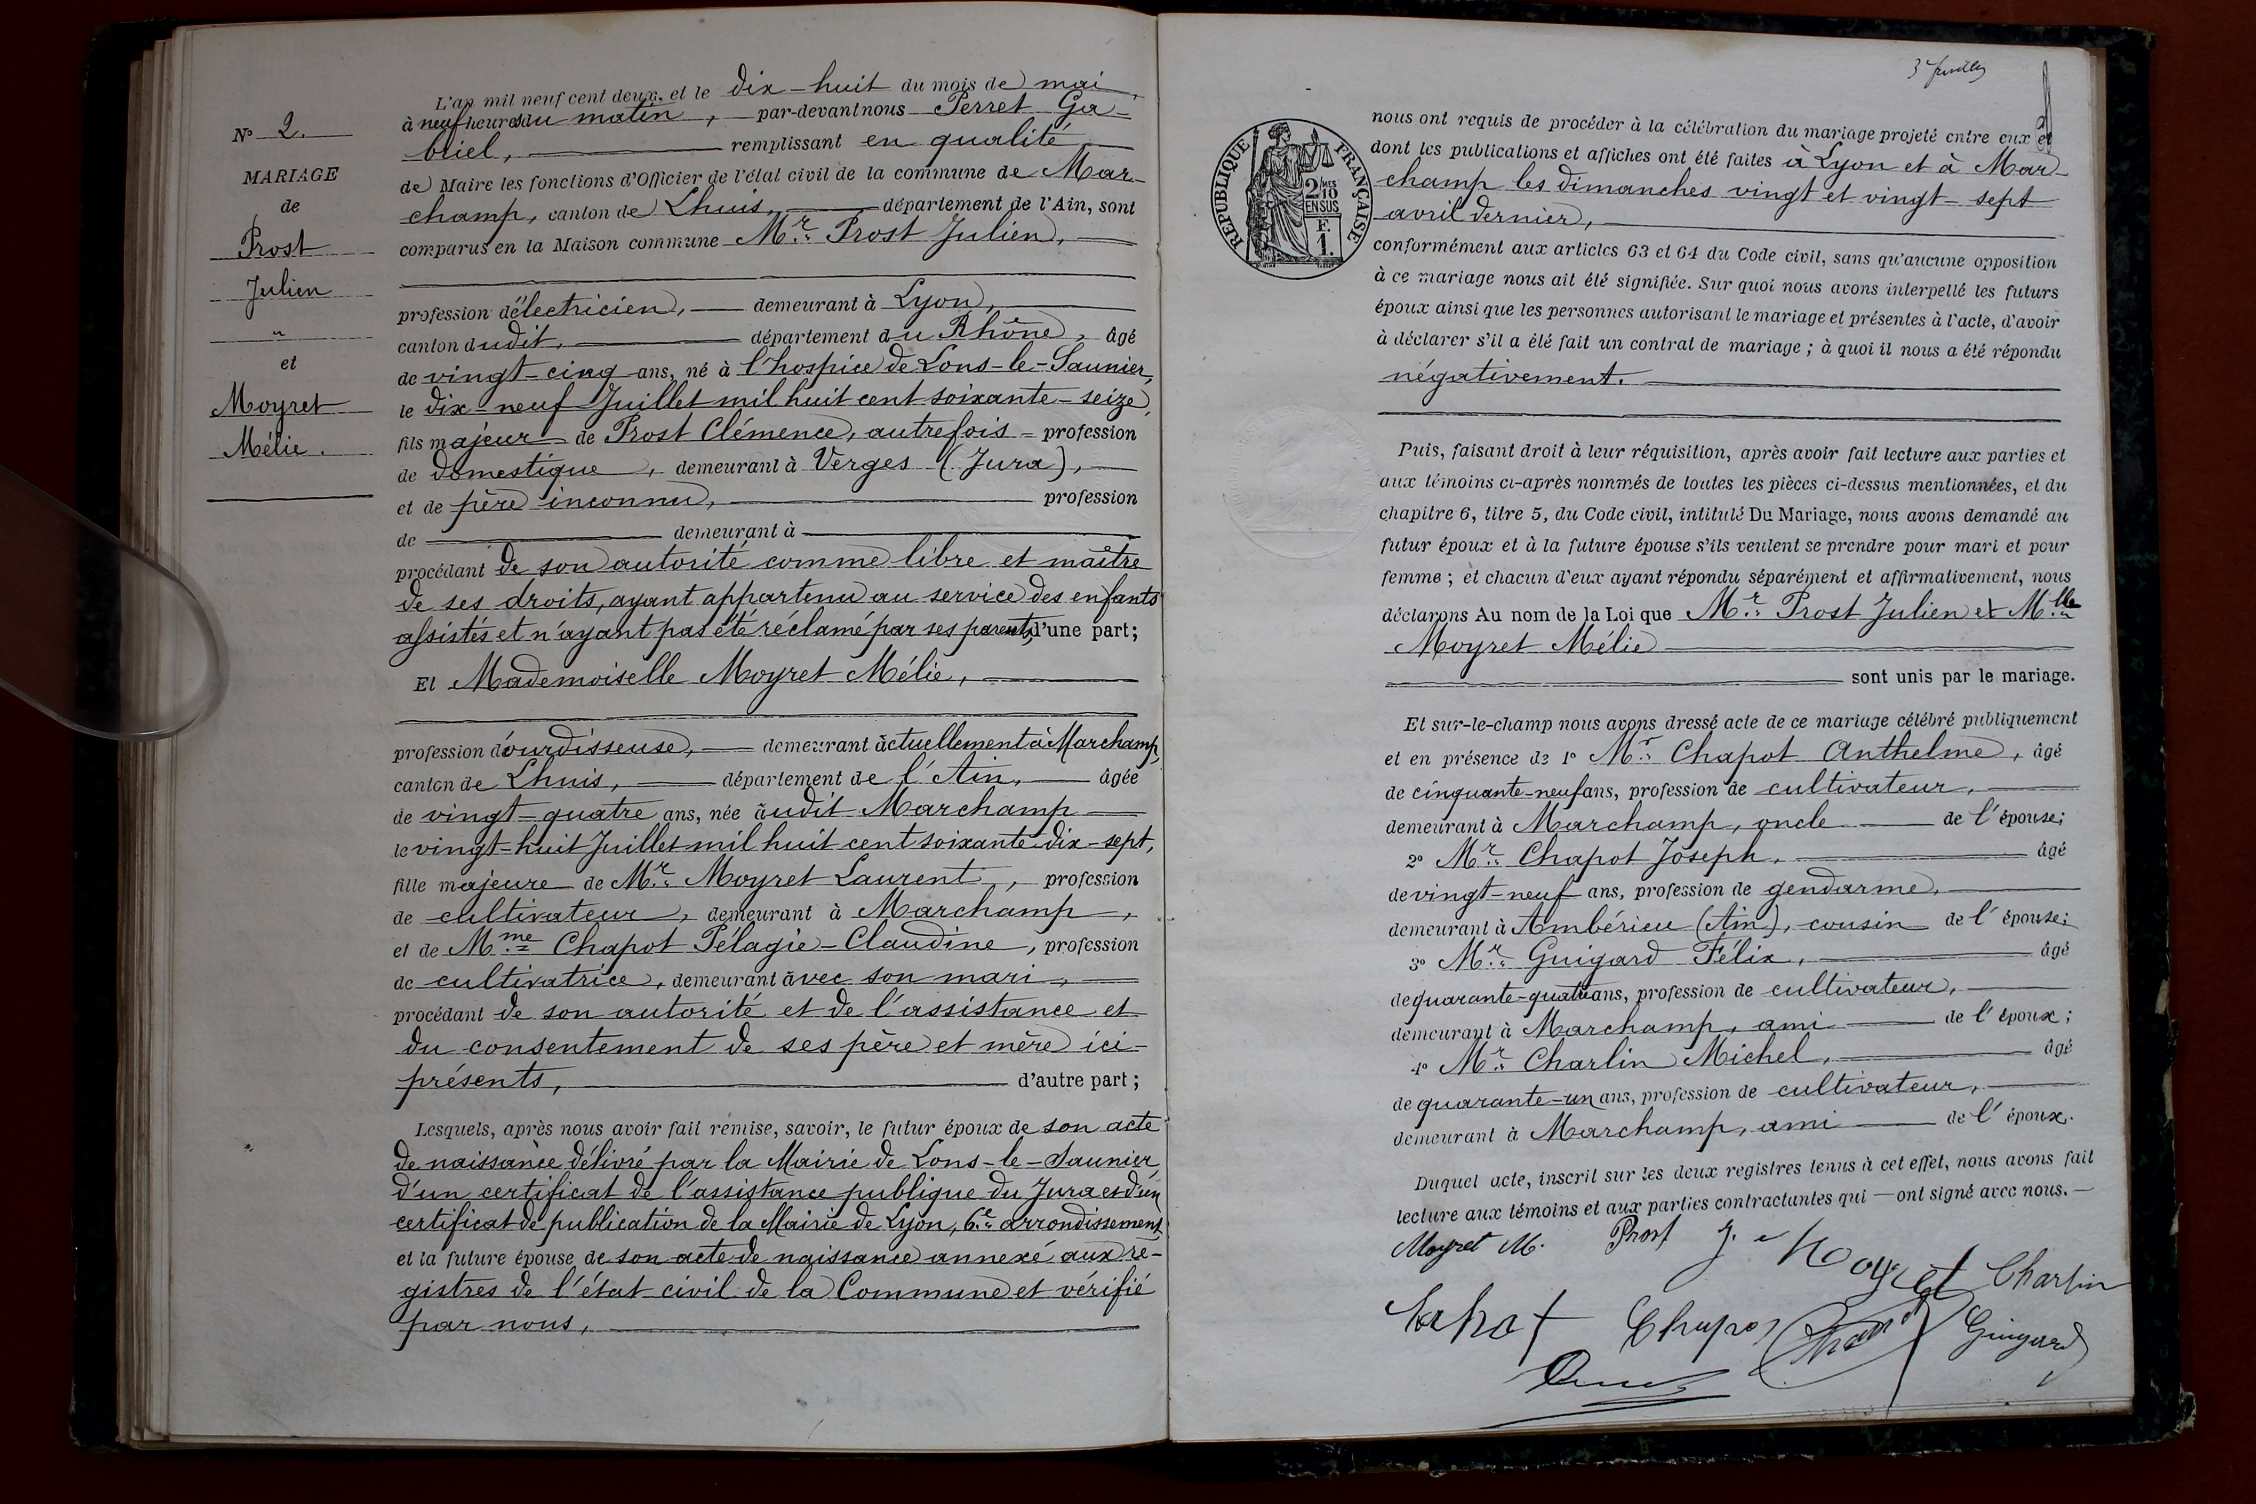 N° 2.
MARIAGE
de
Prost
Julien
"
et
Moyret
Mélie.
L'an mil neuf cent deux, et le dix-huit du mois de mai,
à neuf heures du matin, par-devant nous Perret Ga-
briel, remplissant en qualité
de Maire les fonctions d'Officier de l'état civil de la commune de Mar-
champ, canton de Lhuis, département de l'Ain, sont
comparus en la Maison commune Mr. Prost Julien,
profession d'électricien, demeurant à Lyon,
canton dudit, département du Rhône, âgé
de vingt-cinq ans, né à l'hospice de Lons-le-Saunier,
le dix-neuf Juillet mil huit cent soixante-seize,
fils majeur de Prost Clémence, autrefois profession
de domestique, demeurant à Verges (Jura),
et de père inconnu, profession
de demeurant à
procédant de son autorité comme libre et maître
de ses droits, ayant appartenu au service des enfants
assistés et n'ayant pas été réclamé par ses parents, d'une part;
Et Mademoiselle Moyret Mélie,
profession d'ourdisseuse, demeurant actuellement à Marchamp,
canton de Lhuis, département de l'Ain, âgée
de vingt-quatre ans, née audit Marchamp
le vingt-huit Juillet mil huit cent soixante-dix-sept,
fille majeure de Mr. Moyret Laurent, profession
de cultivateur, demeurant à Marchamp,
et de Mme Chapot Pélagie-Claudine, profession
de cultivatrice, demeurant avec son mari,
procédant de son autorité et de l'assistance et
du consentement de ses père et mère ici
présents, d'autre part;
Lesquels, après nous avoir fait remise, savoir, le futur époux de son acte
de naissance délivré par la Mairie de Lons-le-Saunier,
d'un certificat de l'assistance publique du Jura et d'un
certificat de publication de la Mairie de Lyon, 6e arrondissement,
et la future épouse de son acte de naissance annexé aux re-
gistres de l'état civil de la Commune et vérifié
par nous,
RÉPUBLIQUE FRANÇAISE
2/10 MES
EN SUS
F.
1.
nous ont requis de procéder à la célébration du mariage projeté entre eux et
dont les publications et affiches ont été faites à Lyon et à Mar-
champ les dimanches vingt et vingt-sept
avril dernier,
conformément aux articles 63 et 64 du Code civil, sans qu'aucune opposition
à ce mariage nous ait été signifiée. Sur quoi nous avons interpellé les futurs
époux ainsi que les personnes autorisant le mariage et présentes à l'acte, d'avoir
à déclarer s'il a été fait un contrat de mariage; à quoi il nous a été répondu
négativement.
Puis, faisant droit à leur réquisition, après avoir fait lecture aux parties et
aux témoins ci-après nommés de toutes les pièces ci-dessus mentionnées, et du
chapitre 6, titre 5, du Code civil, intitulé Du Mariage, nous avons demandé au
futur époux et à la future épouse s'ils veulent se prendre pour mari et pour
femme; et chacun d'eux ayant répondu séparément et affirmativement, nous
déclarons Au nom de la Loi que Mr. Prost Julien et Mlle
Moyret Mélie
sont unis par le mariage.
Et sur-le-champ nous avons dressé acte de ce mariage célébré publiquement
et en présence de 1° Mr. Chapot Anthelme, âgé
de cinquante-neuf ans, profession de cultivateur,
demeurant à Marchamp, oncle de l'épouse;
2° Mr. Chapot Joseph, âgé
de vingt-neuf ans, profession de gendarme,
demeurant à Ambérieu (Ain), cousin de l'épouse;
3° Mr. Guigard Félix, âgé
de quarante-quatre ans, profession de cultivateur,
demeurant à Marchamp, ami de l'époux;
4° Mr. Charlin Michel, âgé
de quarante-un ans, profession de cultivateur,
demeurant à Marchamp, ami de l'époux.
Duquel acte, inscrit sur les deux registres tenus à cet effet, nous avons fait
lecture aux témoins et aux parties contractantes qui ont signé avec nous.
Moyret M. Prost J. Moyret Charlin
Chapot Guigard